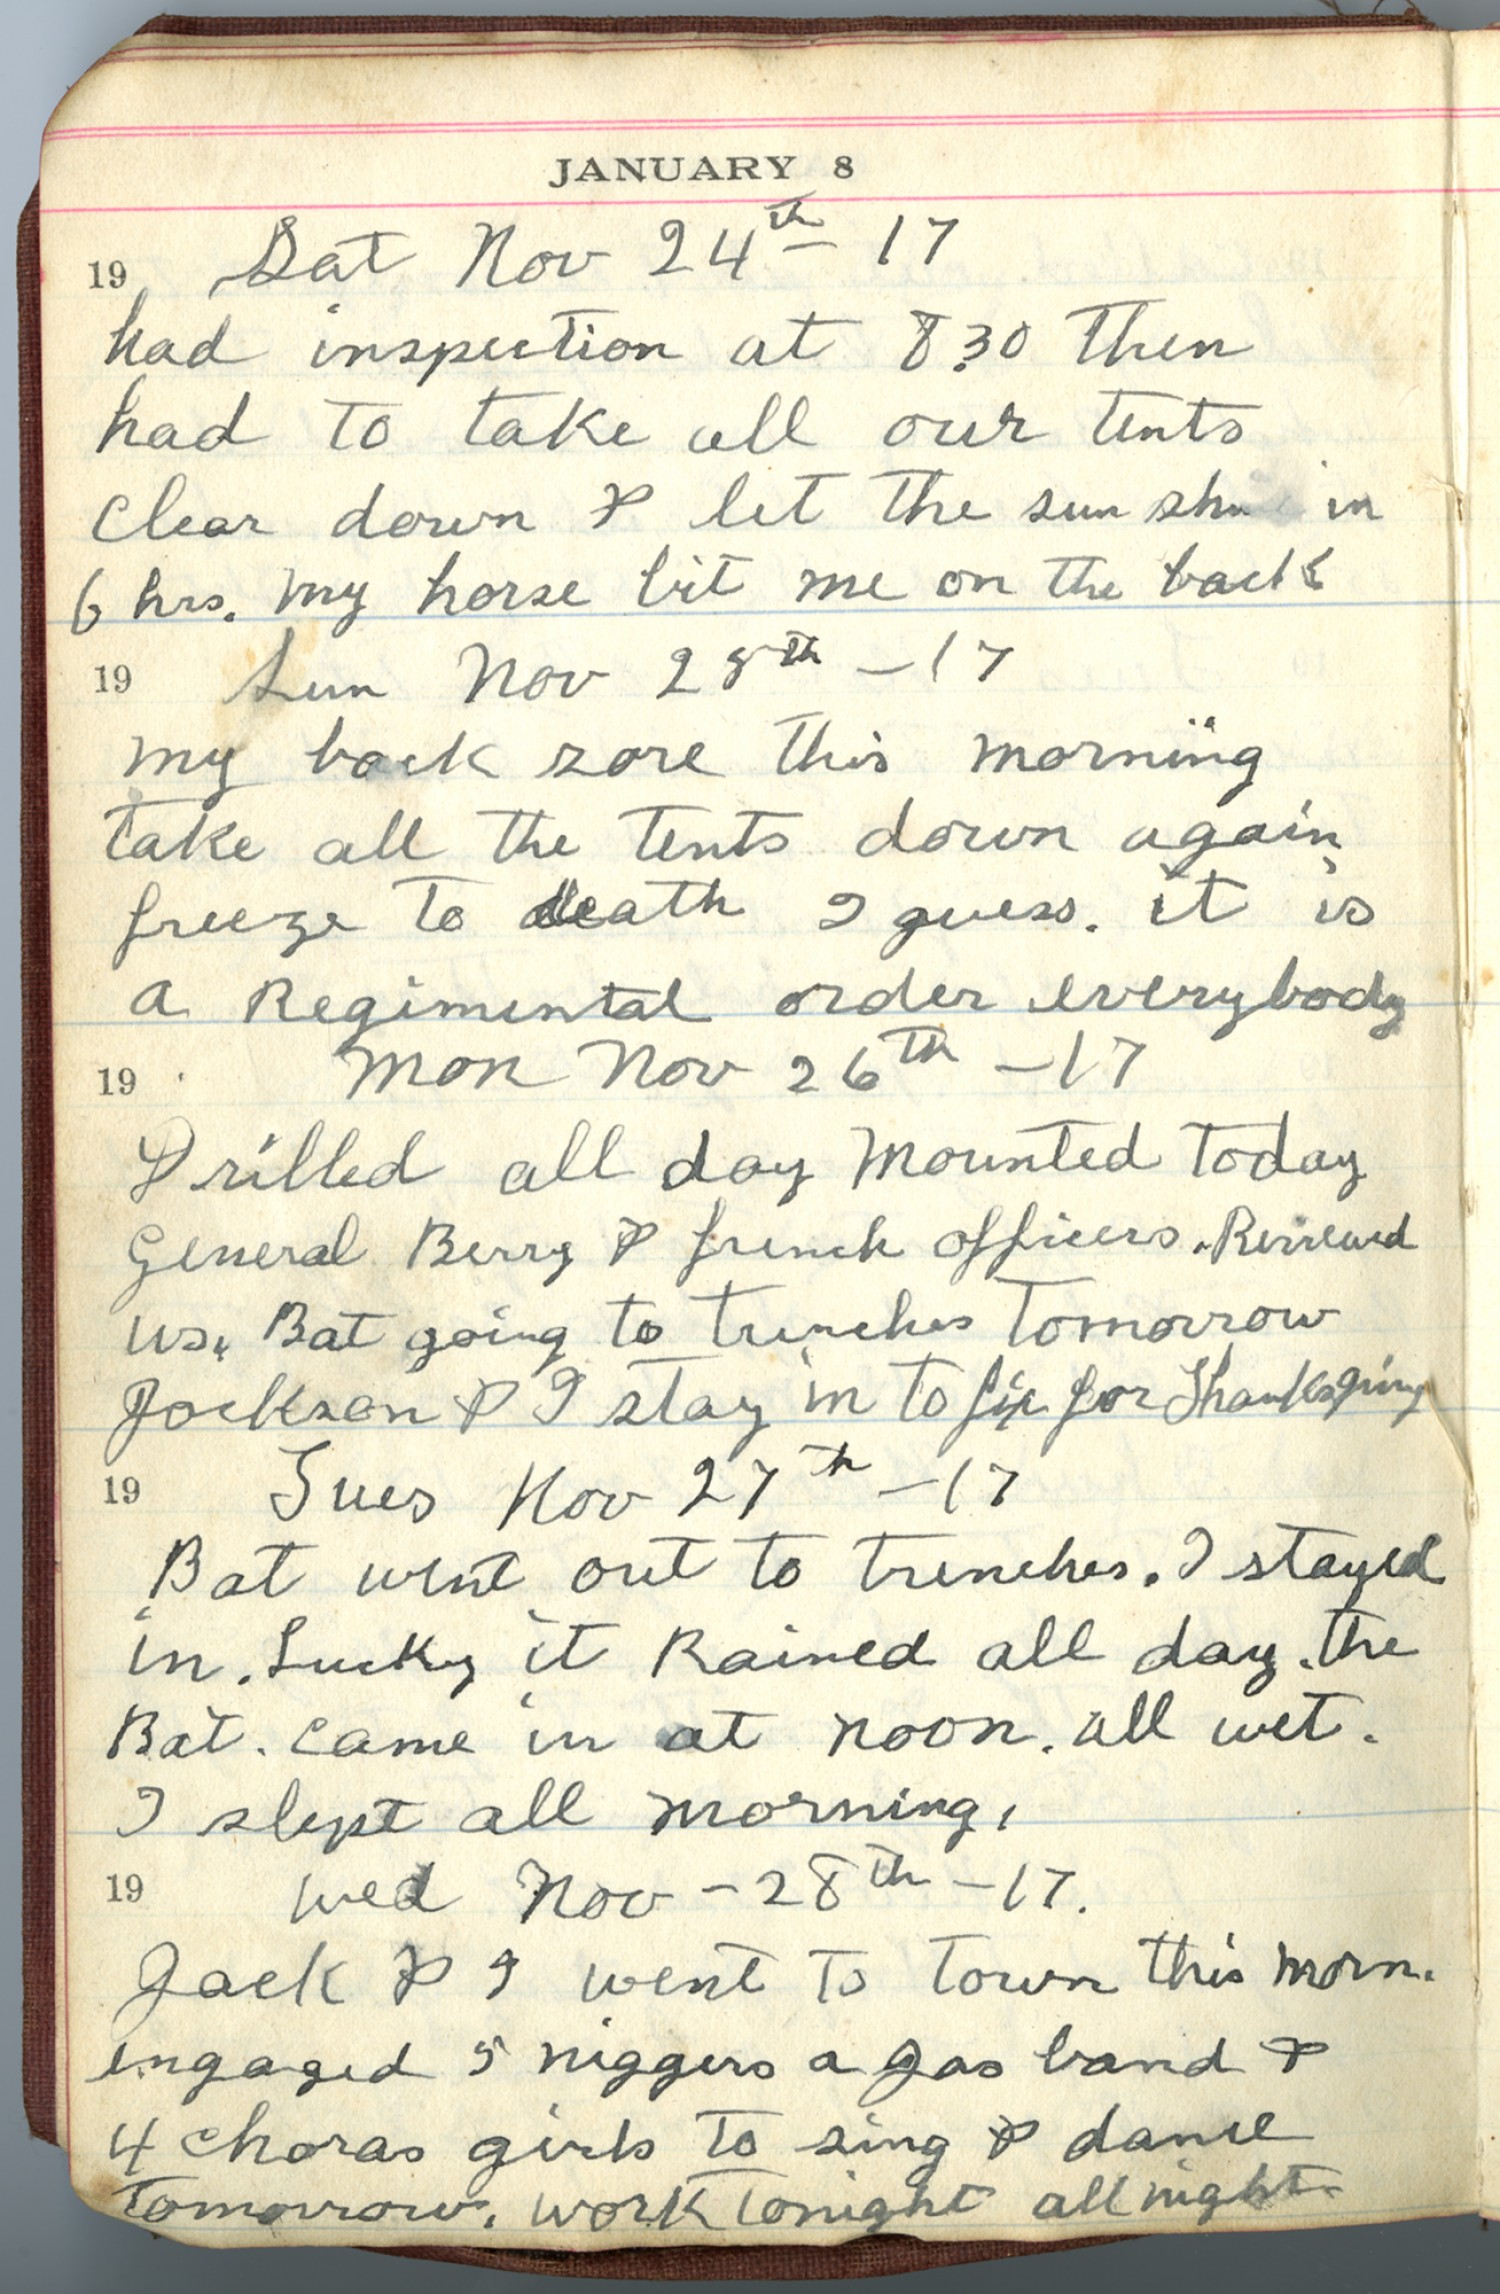 JANUARY 8
19 Sat Nov 24th - 17
had inspection at 8.30 then
had to take all our tents
clear down & let the sun in
6 hrs. my horse bit me on the back
19 Sun Nov 25th - 17
my back sore this morning
take all the tents down again,
freeze to death I guess. it is
a Regimental order everybody
19 Mon Nov 26th - 17
Drilled all day Mounted today
General Berry & french officers. Reviewed
us. Bat going to trenches tomorrow
Jackson & I stay in to fix for Thanksgiving
19 Tues Nov 27th - 17
Bat went out to trenches. I stayed
in. Lucky it Rained all day. the
Bat. came in at noon. all wet.
I slept all morning,
19 Wed Nov - 28th - 17.
Jack & I went to town this morn.
engaged 5 niggers a Jas band &
4 choras girls to sing & dance
tomorrow. work tonight all night.